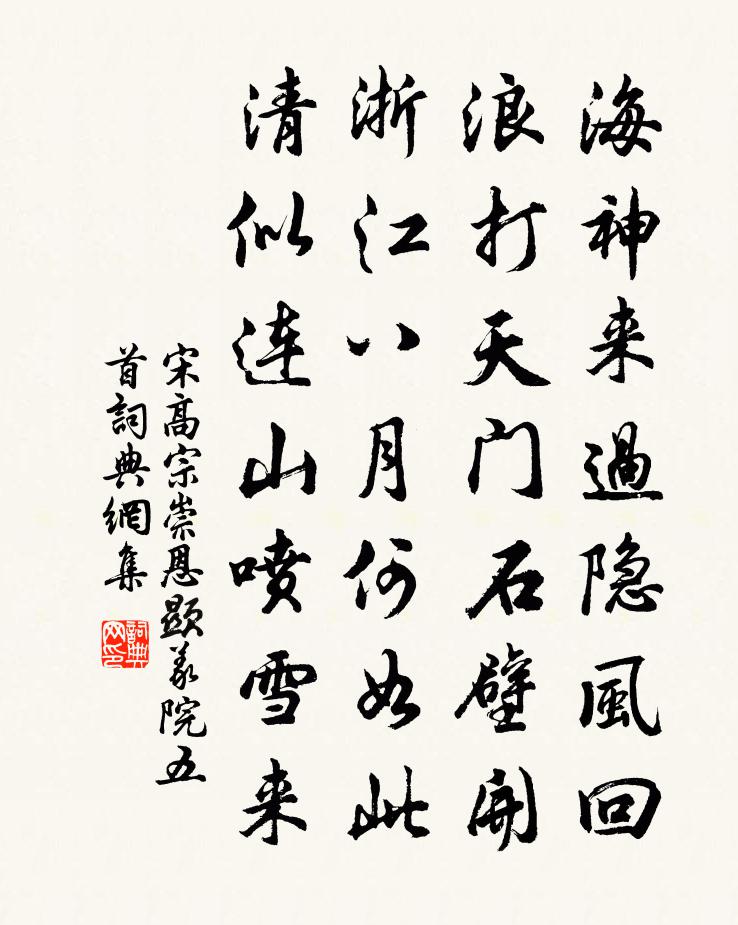 海神来過隐風回
浪打天门石壁開
浙江八月何如此
清似连山喷雪来
宋高宗崇恩顯义院五
首詞典網集
詞典网印